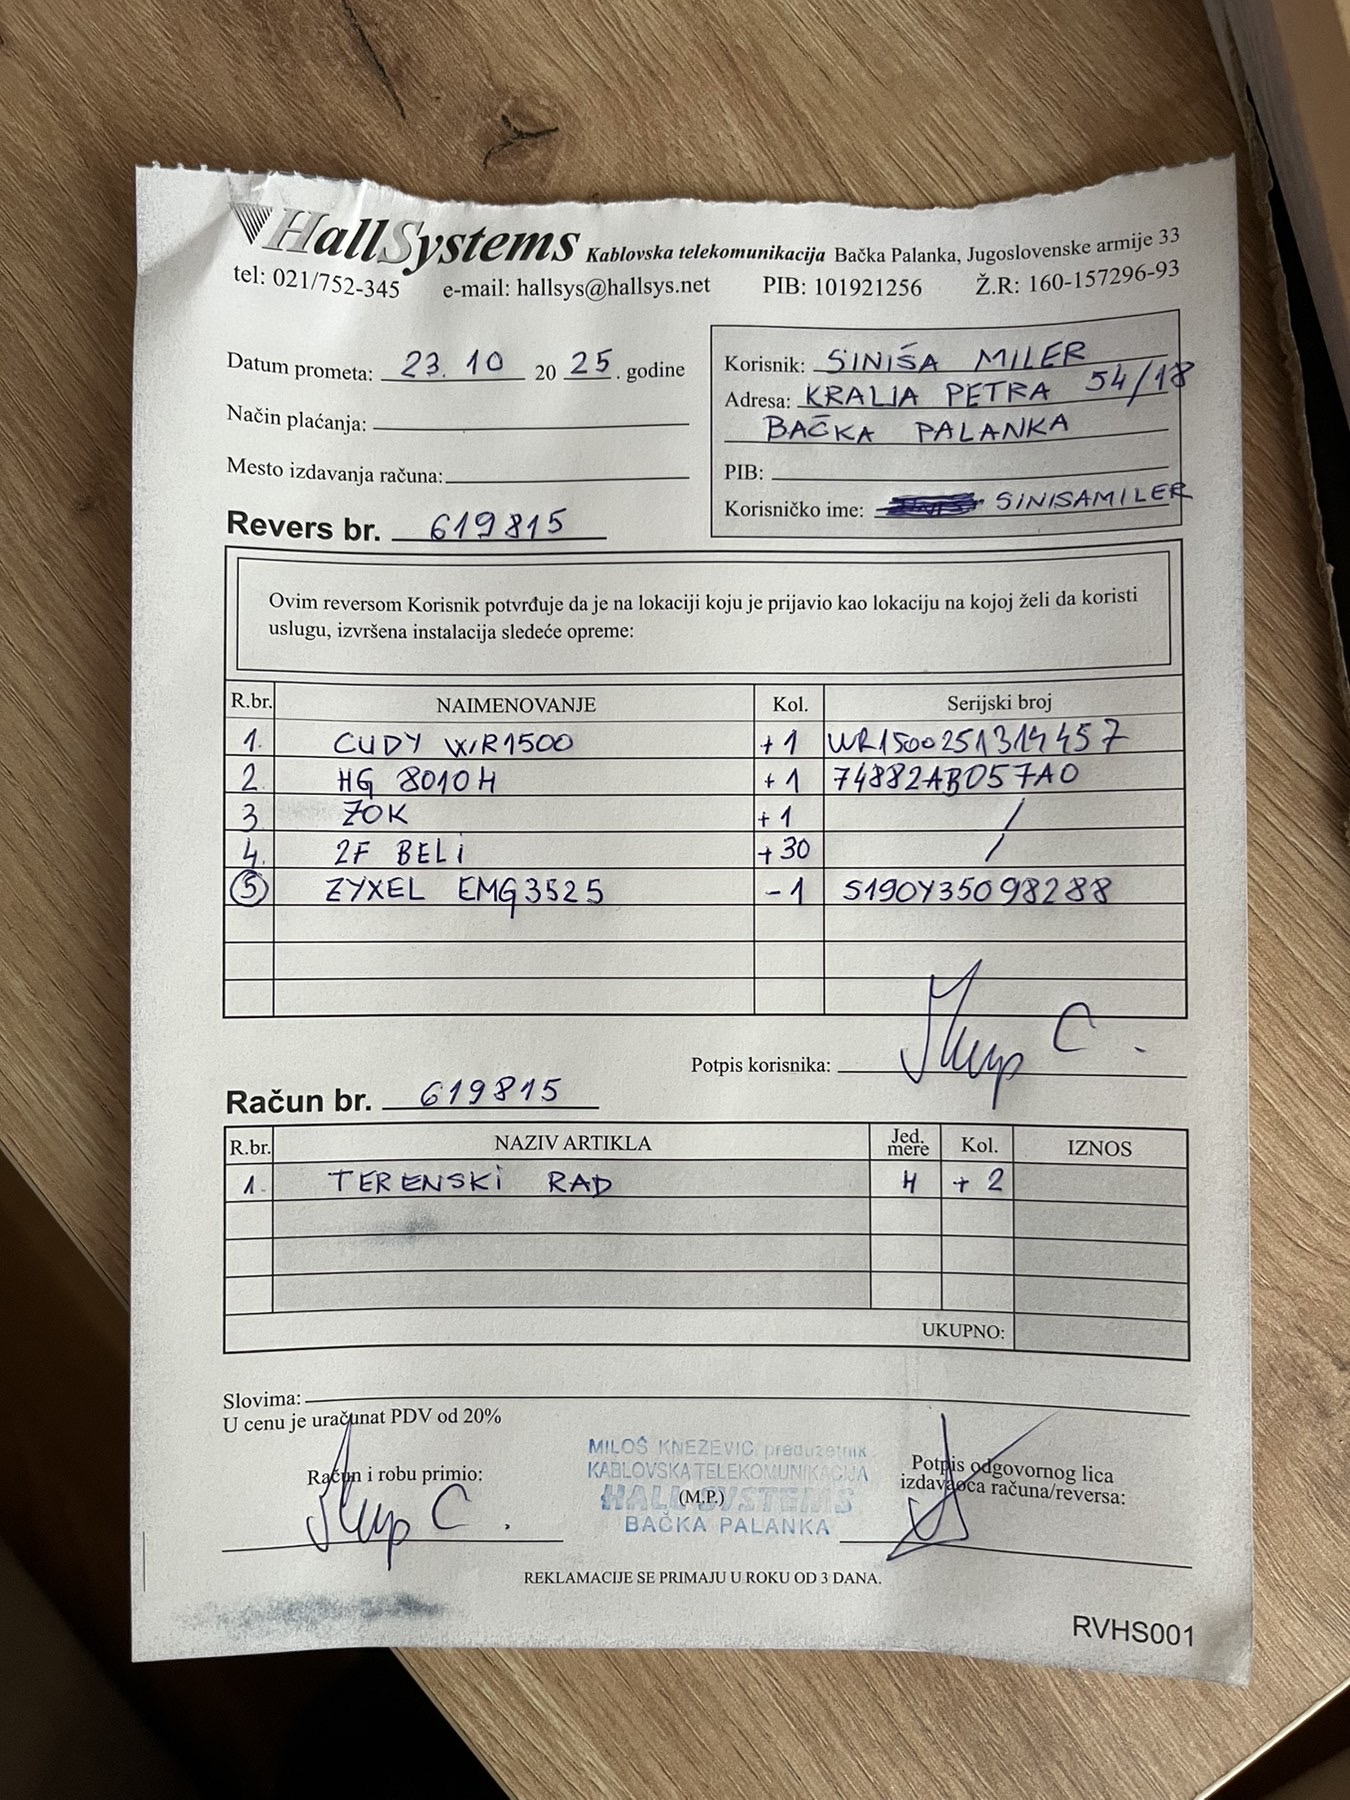 HallSystems Kablovska telekomunikacija Bačka Palanka, Jugoslovenske armije 33
tel: 021/752-345 e-mail: hallsys@hallsys.net PIB: 101921256 Ž.R: 160-157296-93
Datum prometa: 23. 10 20 25. godine
Način plaćanja:
Mesto izdavanja računa:
Revers br. 619815
Korisnik: SINIŠA MILER
Adresa: KRALJA PETRA 54/18
BAČKA PALANKA
PIB:
Korisničko ime: SINISAMILER
Ovim reversom Korisnik potvrđuje da je na lokaciji koju je prijavio kao lokaciju na kojoj želi da koristi
uslugu, izvršena instalacija sledeće opreme:
R.br. NAIMENOVANJE Kol. Serijski broj
1. CUDY WR1500 +1 WR1500251314457
2 HG 8010H +1 74882AB057A0
3 ZOK +1 /
4. 2F BELI +30 /
5 ZYXEL EMG3525 -1 S190Y35098288
Potpis korisnika:
Račun br. 619815
R.br. NAZIV ARTIKLA Jed. mere Kol. IZNOS
1. TERENSKI RAD H + 2
UKUPNO:
Slovima:
U cenu je uračunat PDV od 20%
Račun i robu primio:
MILOŠ KNEZEVIC preduzetnik
KABLOVSKA TELEKOMUNIKACIJA
HALL SYSTEMS
(M.P.)
BAČKA PALANKA
Potpis odgovornog lica
izdavaoca računa/reversa:
REKLAMACIJE SE PRIMAJU U ROKU OD 3 DANA.
RVHS001